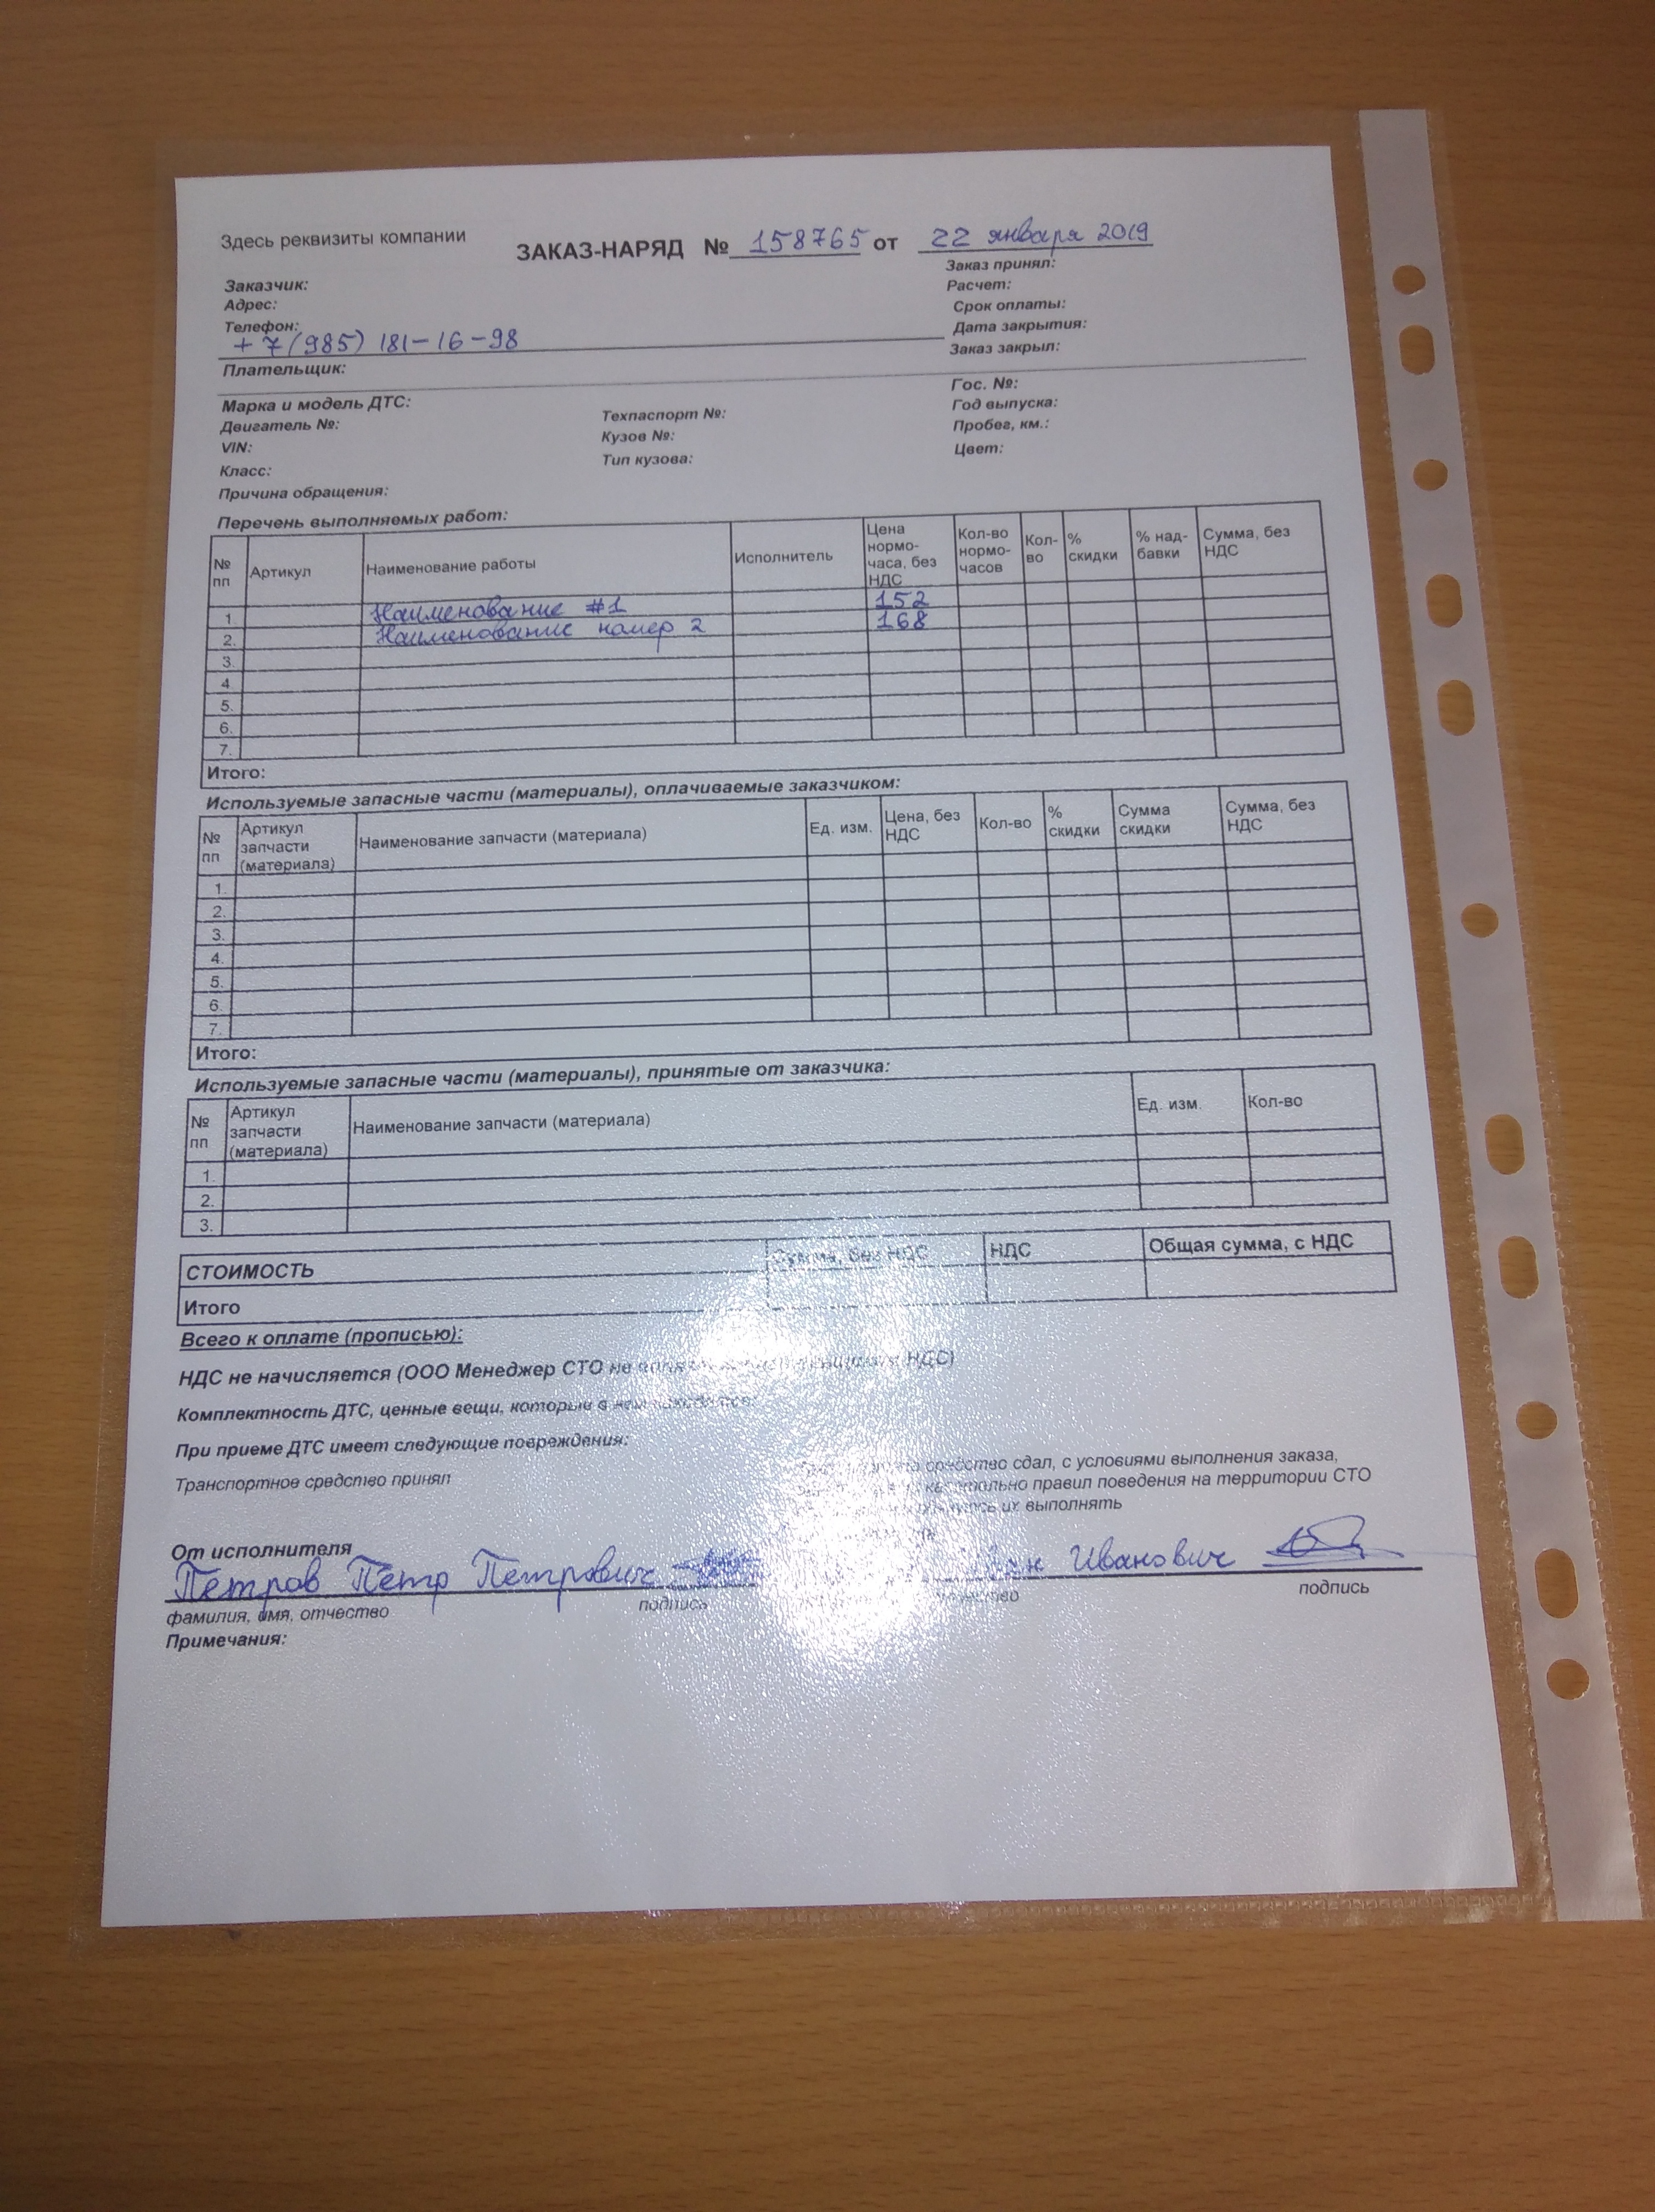 Здесь реквизиты компании
ЗАКАЗ-НАРЯД № 158765 от 22 января 2019
Заказчик:
Адрес:
Телефон:
+7(985) 181-16-98
Плательщик:
Заказ принял:
Расчет:
Срок оплаты:
Дата закрытия:
Заказ закрыл:
Марка и модель ДТС:
Двигатель №:
VIN:
Класс:
Причина обращения:
Техпаспорт №:
Кузов №:
Тип кузова:
Гос. №:
Год выпуска:
Пробег, км.:
Цвет:
Перечень выполняемых работ:
№ пп Артикул Наименование работы Исполнитель Цена нормо-часа, без НДС Кол-во нормо-часов Кол-во % скидки % над-бавки Сумма, без НДС
1. Наименование #1 152
2. Наименование номер 2 168
3.
4
5.
6.
7.
Итого:
Используемые запасные части (материалы), оплачиваемые заказчиком:
№ пп Артикул запчасти (материала) Наименование запчасти (материала) Ед. изм. Цена, без НДС Кол-во % скидки Сумма скидки Сумма, без НДС
1.
2.
3.
4.
5.
6.
7.
Итого:
Используемые запасные части (материалы), принятые от заказчика:
№ пп Артикул запчасти (материала) Наименование запчасти (материала) Ед. изм. Кол-во
1.
2.
3.
СТОИМОСТЬ Сумма, без НДС НДС Общая сумма, с НДС
Итого
Всего к оплате (прописью):
НДС не начисляется (ООО Менеджер СТО не НДС)
Комплектность ДТС, ценные вещи, которые в
При приеме ДТС имеет следующие повреждения:
Транспортное средство принял
средство сдал, с условиями выполнения заказа,
правил поведения на территории СТО
их выполнять
От исполнителя
Петров Петр Петрович
фамилия, имя, отчество подпись
Иванович
подпись
Примечания: